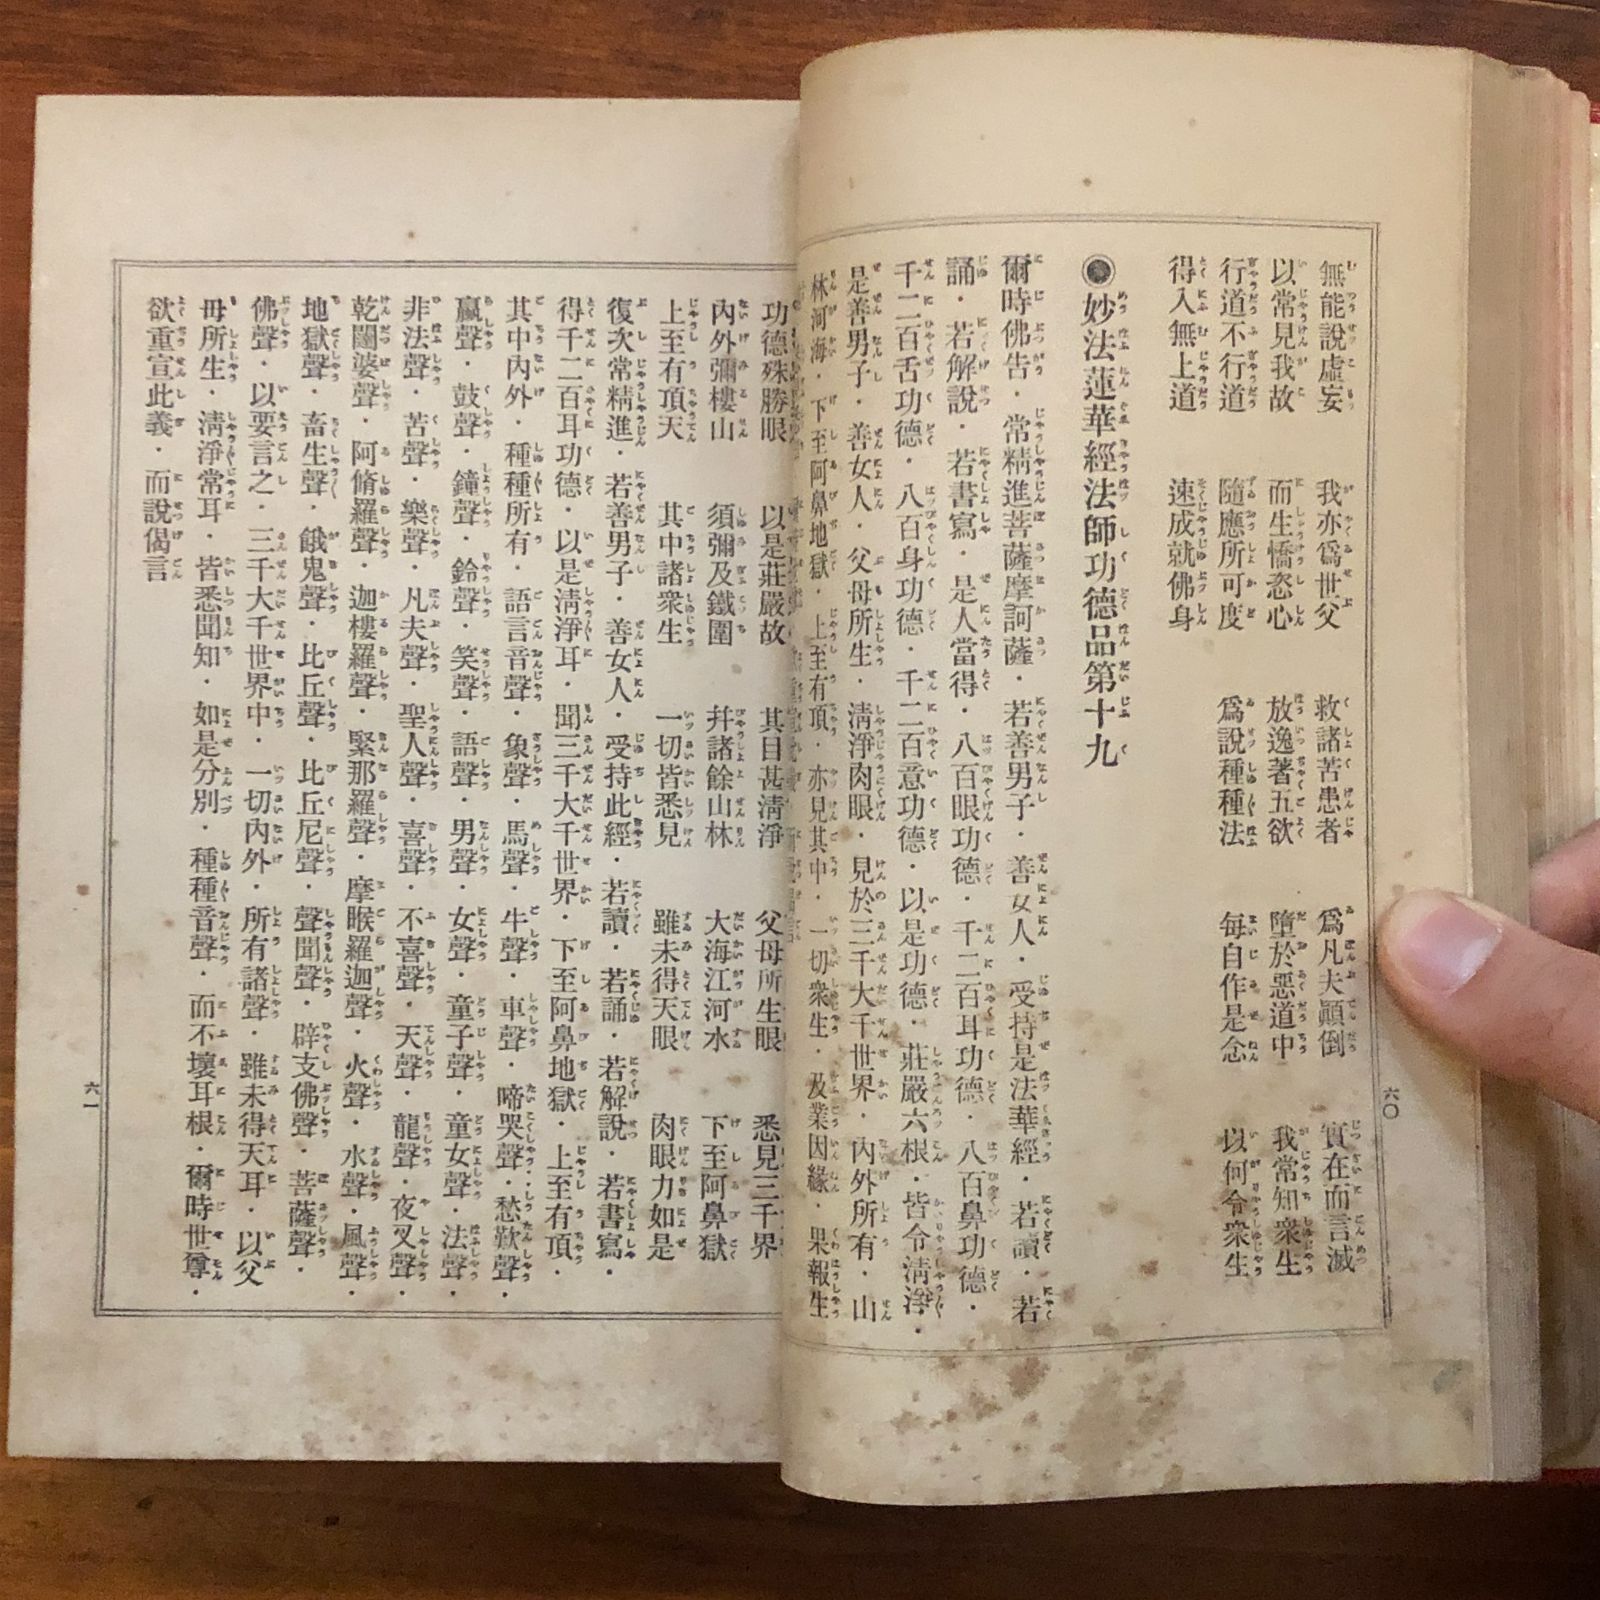 無能說虛妄　我亦爲世父　救諸苦患者　爲凡夫顚倒　實在而言滅
以常見我故　而生憍恣心　放逸著五欲　墮於惡道中　我常知衆生
行道不行道　隨應所可度　爲說種種法　每自作是念　以何令衆生
得入無上道　速成就佛身
◉妙法蓮華經法師功德品第十九
爾時佛告・常精進菩薩摩訶薩・若善男子・善女人・受持是法華經・若讀・若
誦・若解說・若書寫・是人當得・八百眼功德・千二百耳功德・八百鼻功德・
千二百舌功德・八百身功德・千二百意功德・以是功德・莊嚴六根・皆令淸淨・
是善男子・善女人・父母所生・淸淨肉眼・見於三千大千世界・內外所有・山
林河海・下至阿鼻地獄・上至有頂・亦見其中・一切衆生・及業因緣・果報生
六〇
功德殊勝眼　以是莊嚴故　其目甚淸淨　父母所生眼　悉見三千界
內外彌樓山　須彌及鐵圍　幷諸餘山林　大海江河水　下至阿鼻獄
上至有頂天　其中諸衆生　一切皆悉見　雖未得天眼　肉眼力如是
復次常精進・若善男子・善女人・受持此經・若讀・若誦・若解說・若書寫・
得千二百耳功德・以是淸淨耳・聞三千大千世界・下至阿鼻地獄・上至有頂・
其中內外・種種所有・語言音聲・象聲・馬聲・牛聲・車聲・啼哭聲・愁歎聲・
蠃聲・鼓聲・鐘聲・鈴聲・笑聲・語聲・男聲・女聲・童子聲・童女聲・法聲・
非法聲・苦聲・樂聲・凡夫聲・聖人聲・喜聲・不喜聲・天聲・龍聲・夜叉聲・
乾闥婆聲・阿脩羅聲・迦樓羅聲・緊那羅聲・摩睺羅迦聲・火聲・水聲・風聲・
地獄聲・畜生聲・餓鬼聲・比丘聲・比丘尼聲・聲聞聲・辟支佛聲・菩薩聲・
佛聲・以要言之・三千大千世界中・一切內外・所有諸聲・雖未得天耳・以父
母所生・淸淨常耳・皆悉聞知・如是分別・種種音聲・而不壞耳根・爾時世尊・
欲重宣此義・而說偈言
六一